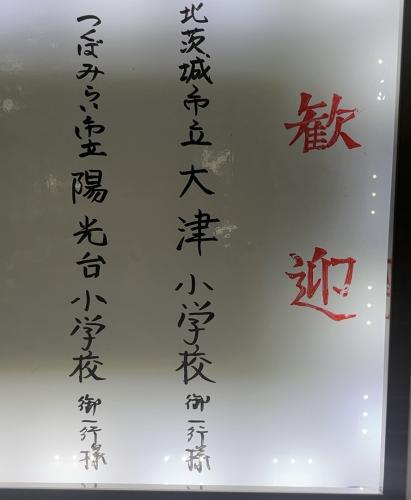 歓迎
北茨城市立大津小学校御一行様
つくばみらい市立陽光台小学校御一行様